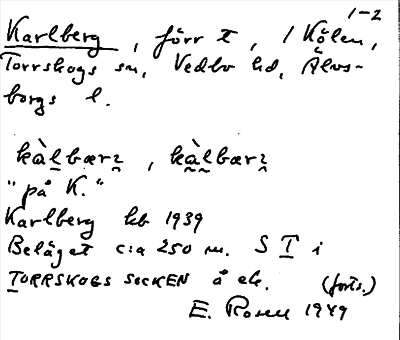 1-2
Karlberg, förr t, / Kölen,
Torrskogs sn, Vedbo hd, Älvs-
borgs l.
kàlbærꝛ, kàlbærꝛ
"på K."
Karlberg kb 1939
Beläget c:a 250 m. S T i
TORRSKOGS SOCKEN å ek. (forts.)
E. Rosell 1949